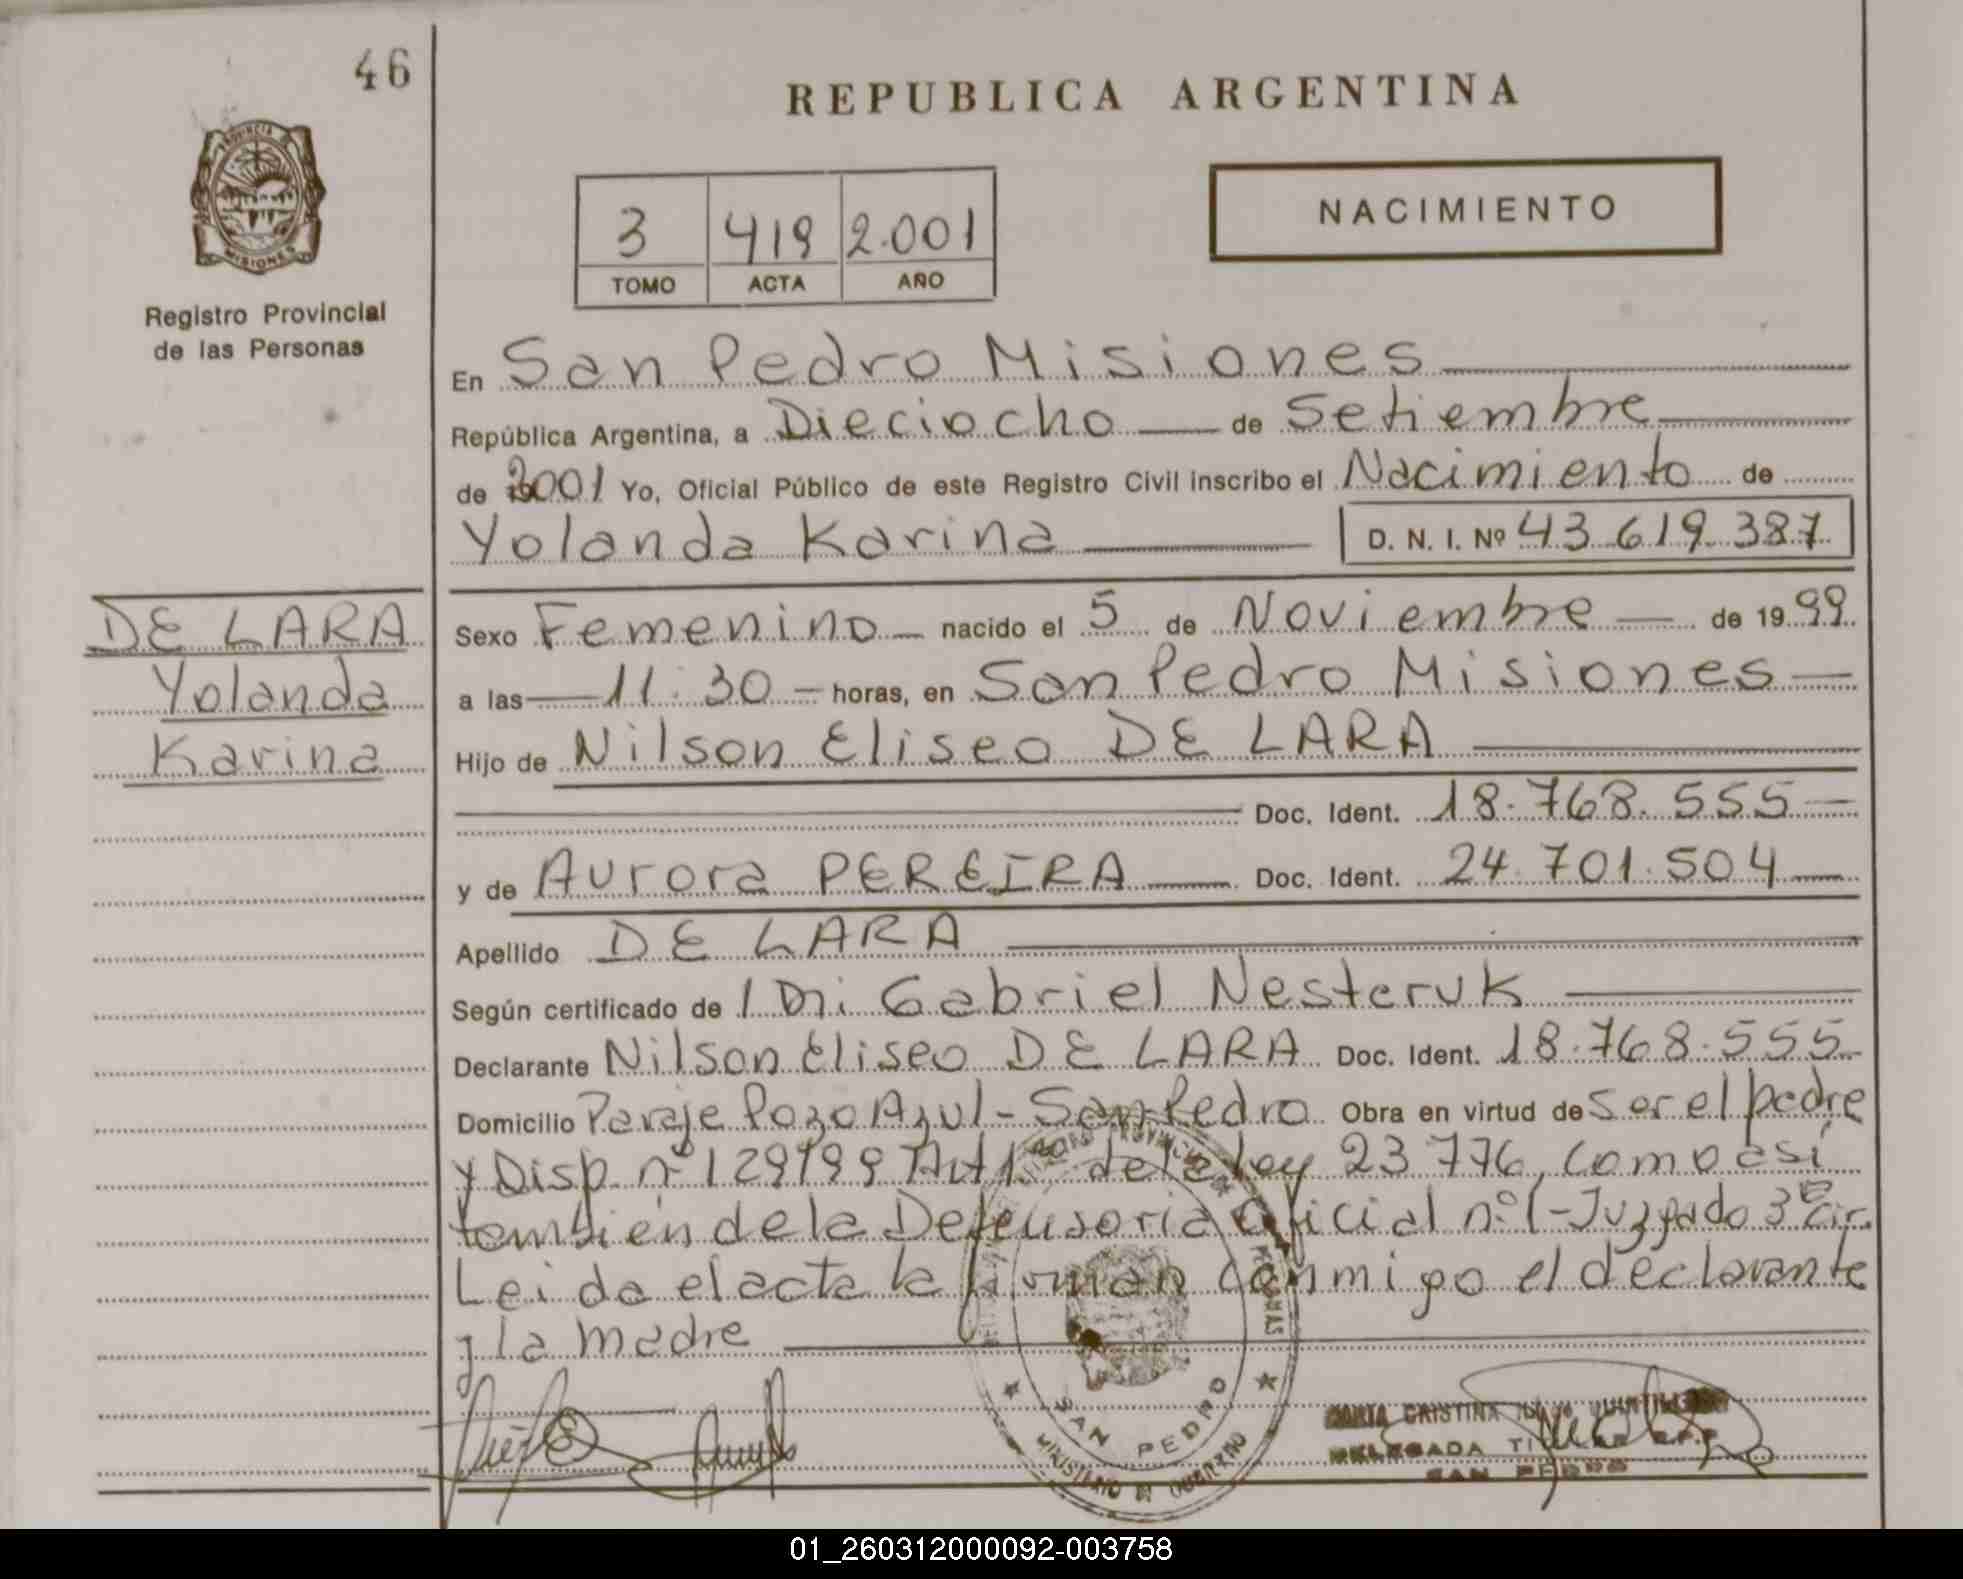 46
REPUBLICA ARGENTINA
PROVINCIA DE
MISIONES
Registro Provincial
de las Personas
3 419 2.001
TOMO ACTA AÑO
NACIMIENTO
En San Pedro Misiones
República Argentina, a Dieciocho de Setiembre
de 2001 Yo, Oficial Público de este Registro Civil inscribo el Nacimiento de
Yolanda Karina D. N. I. Nº 43.619.387
DE LARA
Yolanda
Karina
Sexo Femenino nacido el 5 de Noviembre de 1999
a las 11.30 horas, en San Pedro Misiones
Hijo de Nilson Eliseo DE LARA
Doc. Ident. 18.768.555
y de Aurora PEREIRA Doc. Ident. 24.701.504
Apellido DE LARA
Según certificado de Gabriel Nesteruk
Declarante Nilson Eliseo DE LARA Doc. Ident. 18.768.555
Domicilio Paraje Pozo Azul - San Pedro Obra en virtud de ser el padre
y Disp. nº 129199 Art 1º de la Ley 23776, como así
también de la Defensoria Oficial nº 1 - Juzgado 3ª Cir.
Leida el acta la firman conmigo el declarante
y la madre
SAN PEDRO
MINISTERIO DE GOBIERNO
CRISTINA
DELEGADA TITULAR R.P.P.
SAN PEDRO
01_260312000092-003758